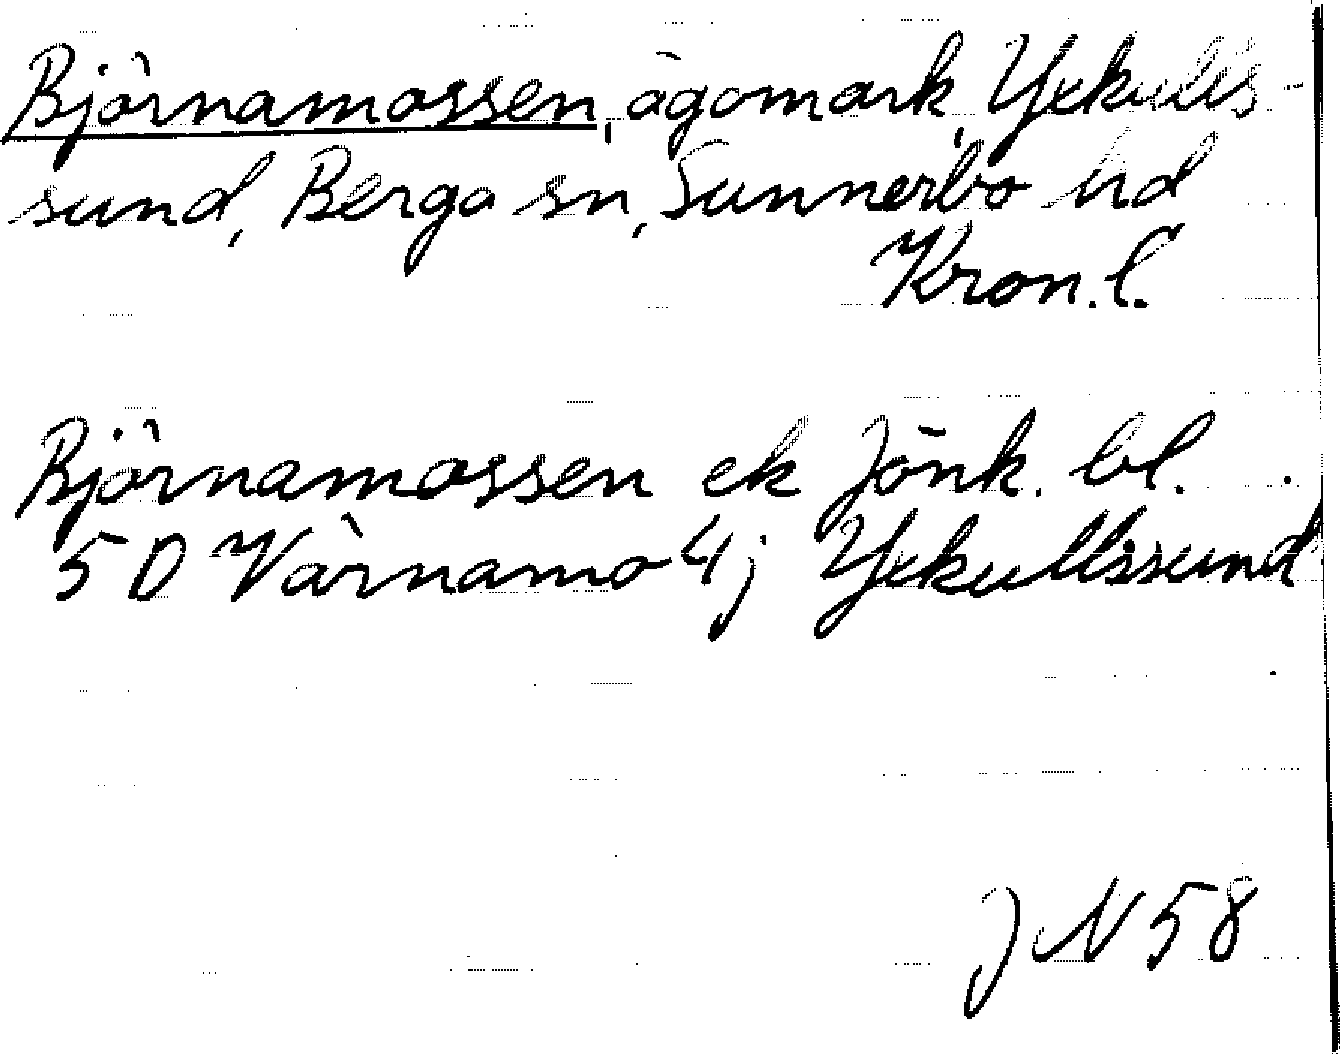 Björnamossen, ägomark, Yxkulls-
sund, Berga sn, Sunnerbo hd
Kron. l.
Björnamossen ek Jönk. bl.
5 D Värnamo 4 j Yxkullssund
J N 58